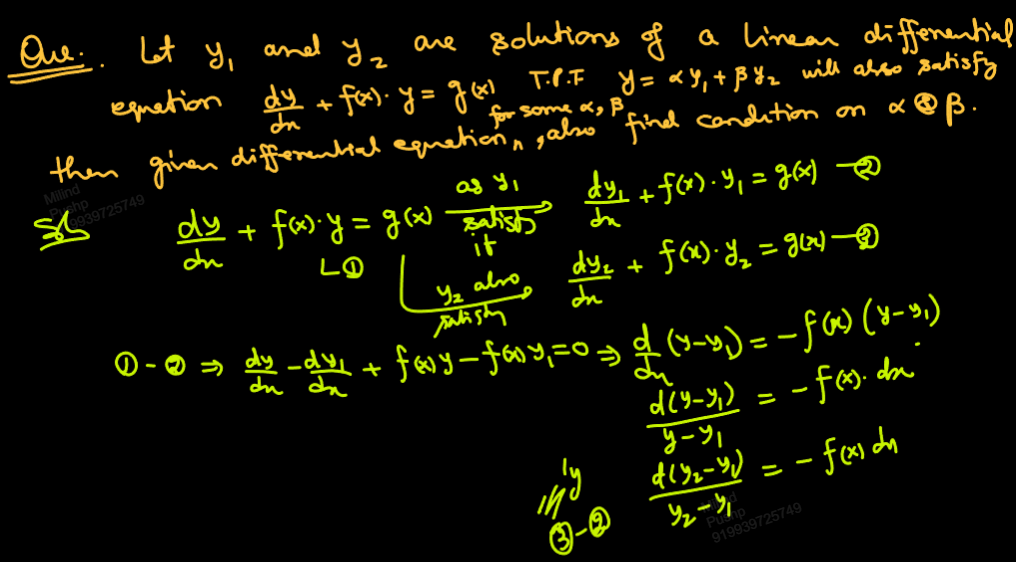 Que. Let y₁ and y₂ are solutions of a linear differential
equation dy/dx + f(x)·y = g(x) T.P.T y = αy₁ + βy₂ will also satisfy
then given differential equation, for some α, β, also find condition on α & β.
Sol dy/dx + f(x)·y = g(x) —① as y₁ satisfy it → dy₁/dx + f(x)·y₁ = g(x) —②
y₂ also satisfy → dy₂/dx + f(x)·y₂ = g(x) —③
① - ② ⇒ dy/dx - dy₁/dx + f(x)y - f(x)y₁ = 0 ⇒ d/dx (y-y₁) = -f(x) (y-y₁)
d(y-y₁)/(y-y₁) = -f(x)·dx
|||ly ③-② d(y₂-y₁)/(y₂-y₁) = -f(x) dx
Milind
Pushp
919939725749
Milind
Pushp
919939725749